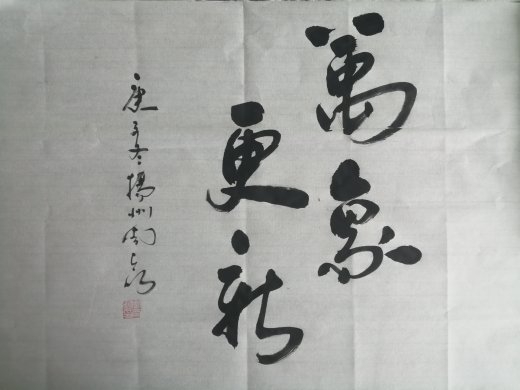 萬象
更新
庚子冬揚州周